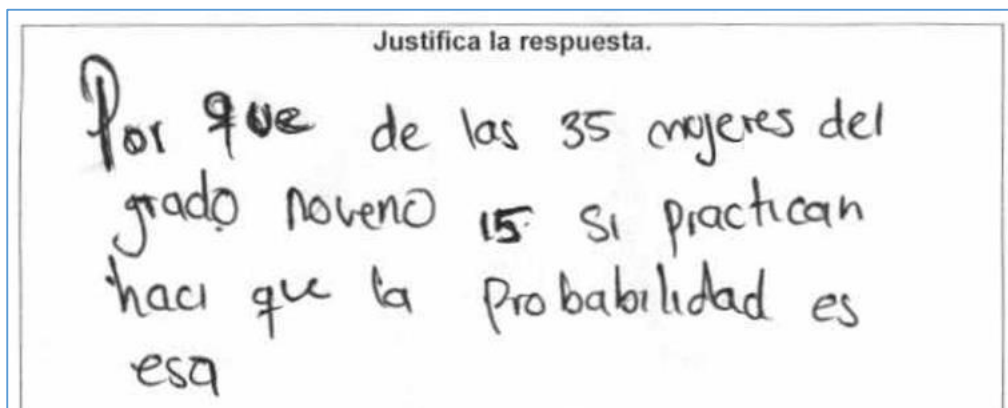 Justifica la respuesta.
Por que de las 35 mujeres del
grado noveno 15 si practican
haci que la probabilidad es
esa